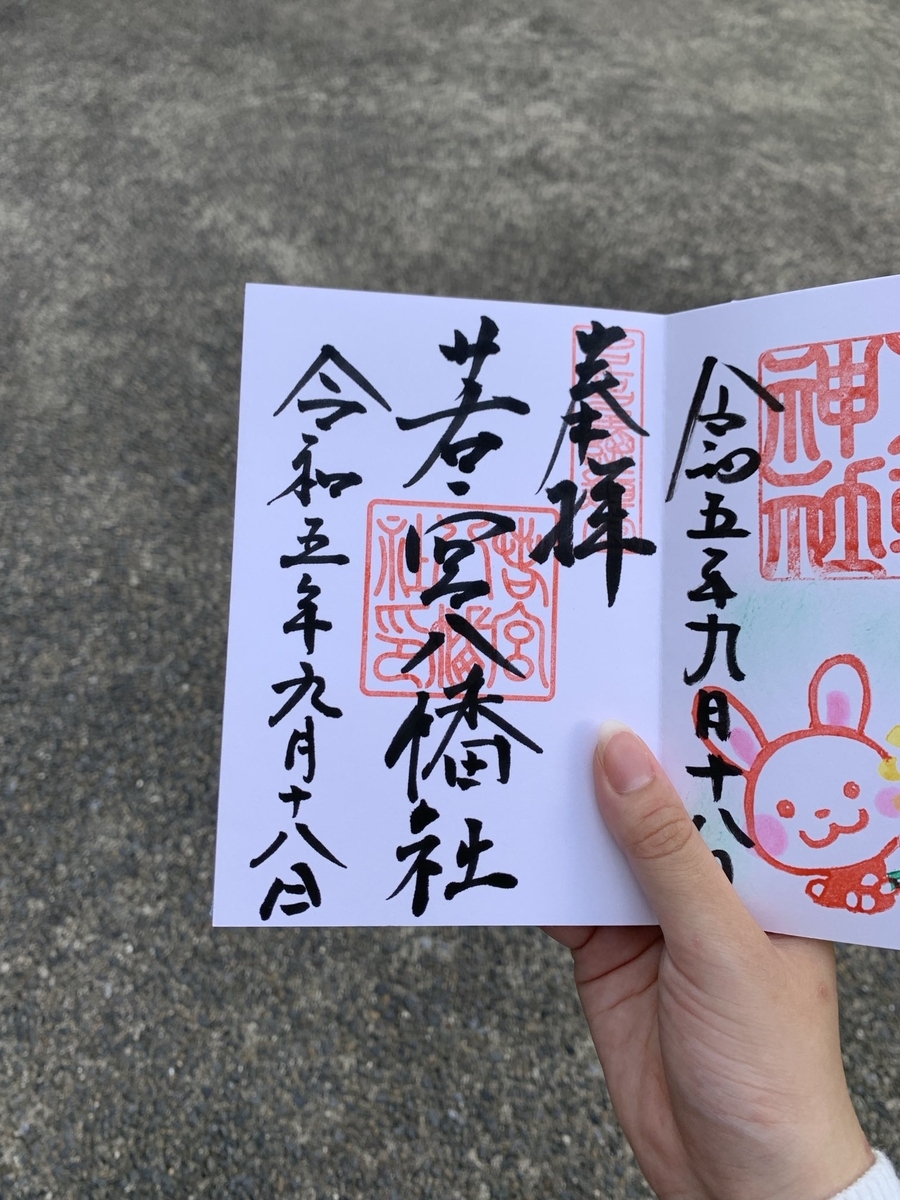 神社
令和五年九月十八日
奉拝
若宮八幡社
若宮八幡社印
令和五年九月十八日